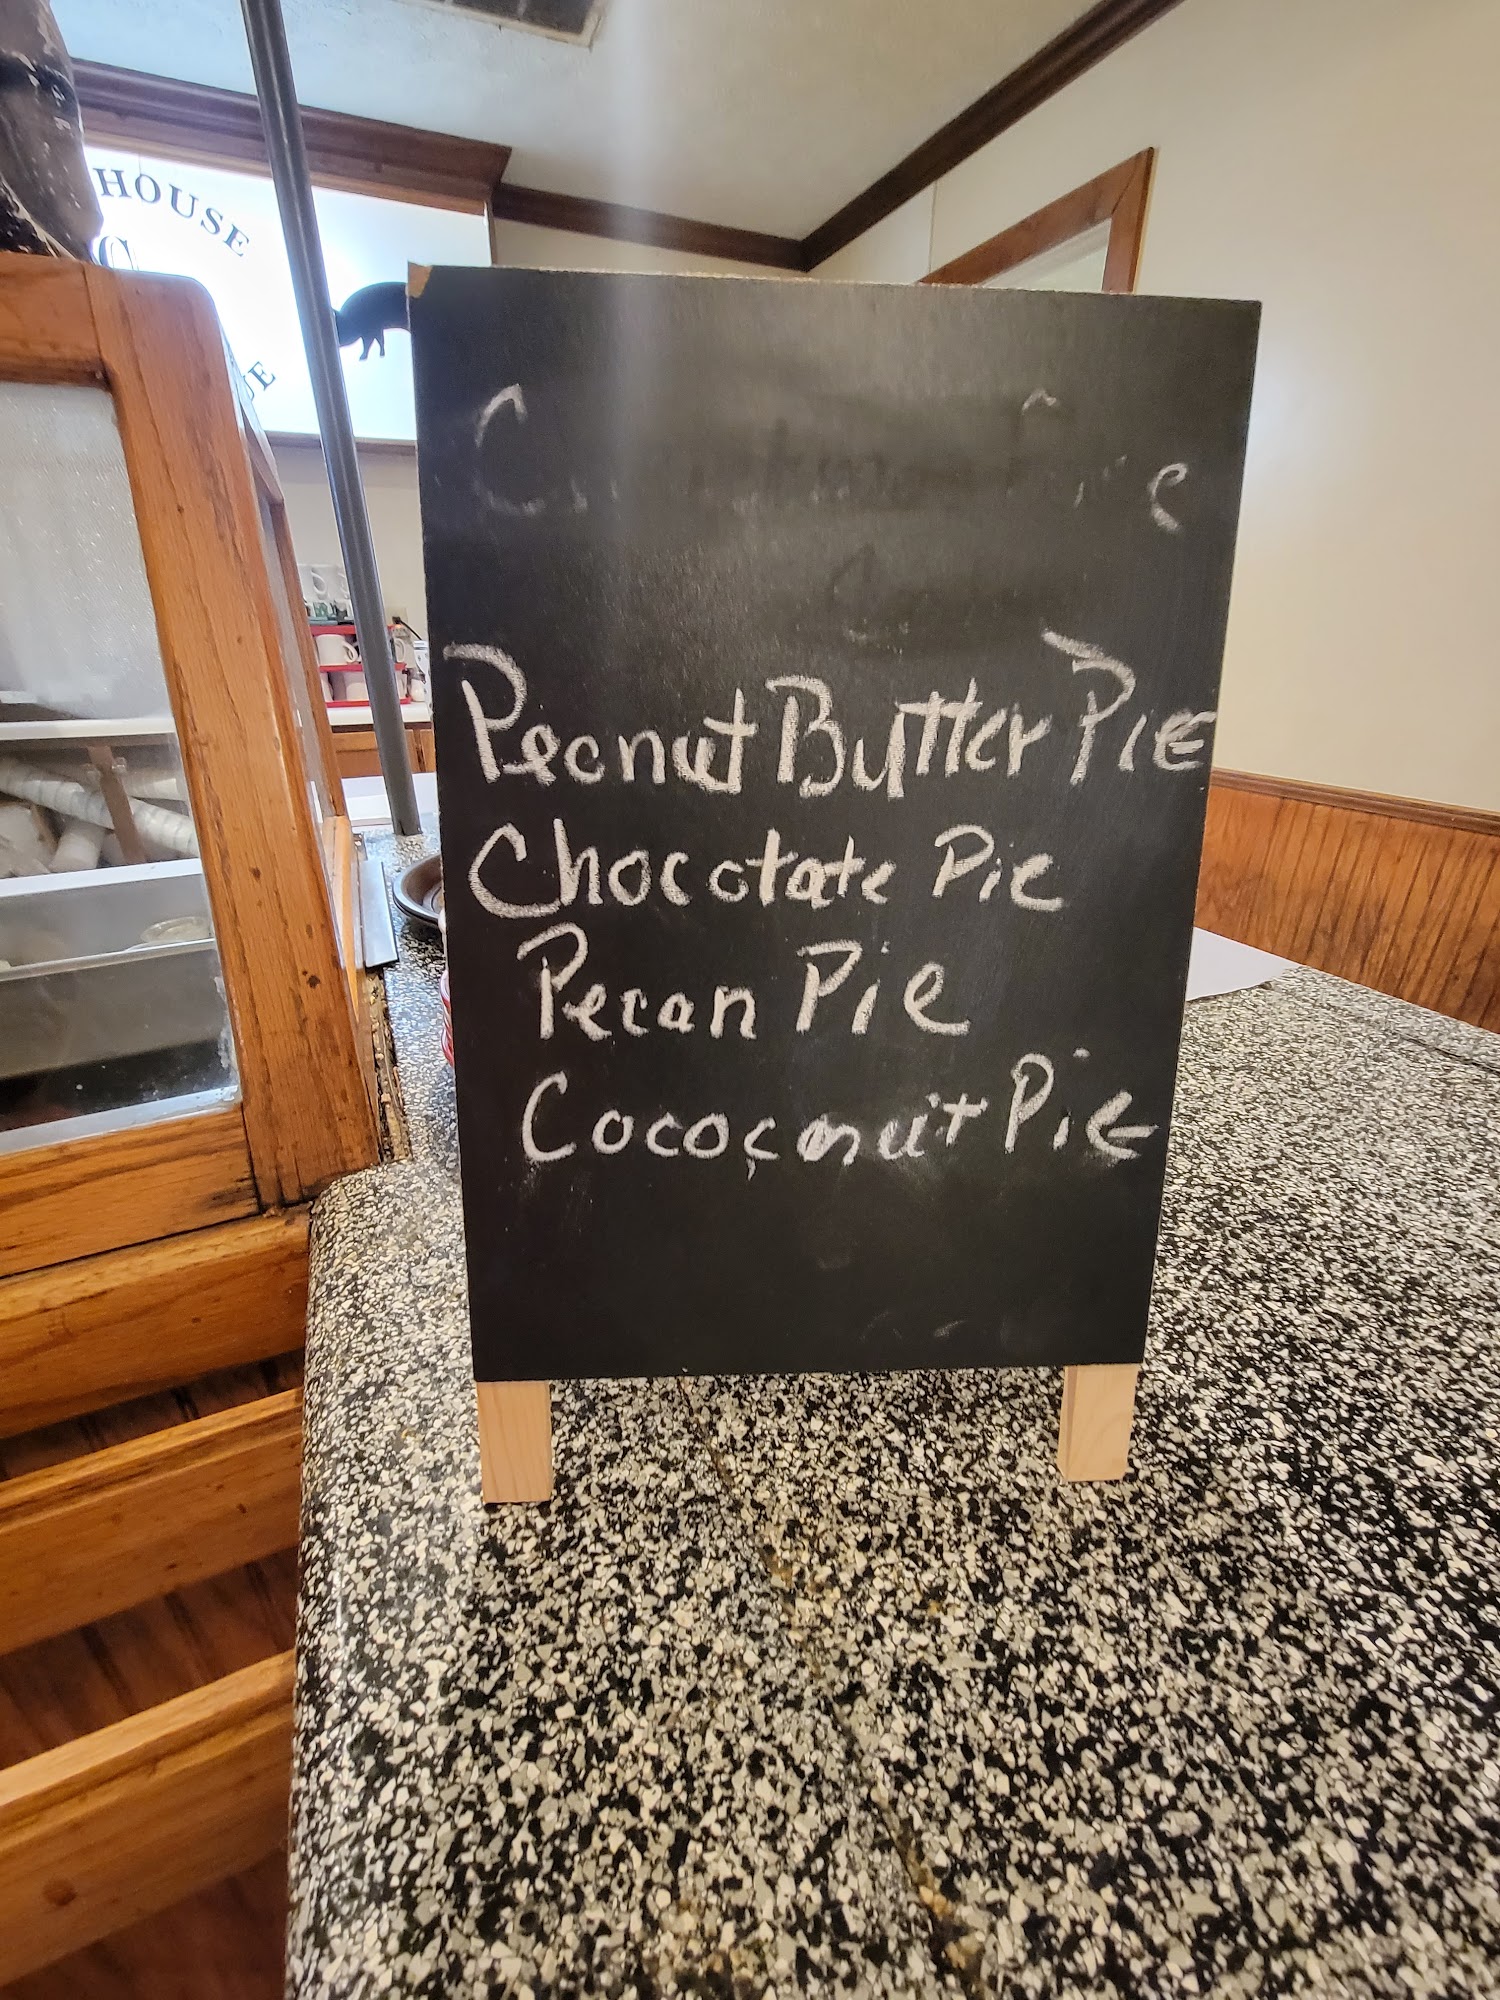 HOUSE
Peanut Butter Pie
Chocolate Pie
Pecan Pie
Cococonut Pie